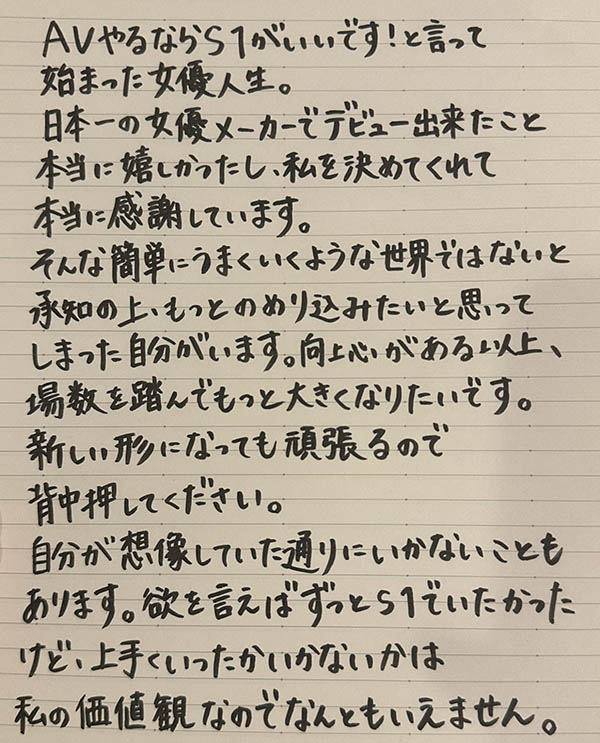 AVやるならS1がいいです！と言って
始まった女優人生。
日本一の女優メーカーでデビュー出来たこと
本当に嬉しかったし、私を決めてくれて
本当に感謝しています。
そんな簡単にうまくいくような世界ではないと
承知の上、もっとのめり込みたいと思って
しまった自分がいます。向上心がある以上、
場数を踏んでもっと大きくなりたいです。
新しい形になっても頑張るので
背中押してください。
自分が想像していた通りにいかないことも
あります。欲を言えばずっとS1でいたかった
けど、上手くいったかいかないかは
私の価値観なのでなんともいえません。